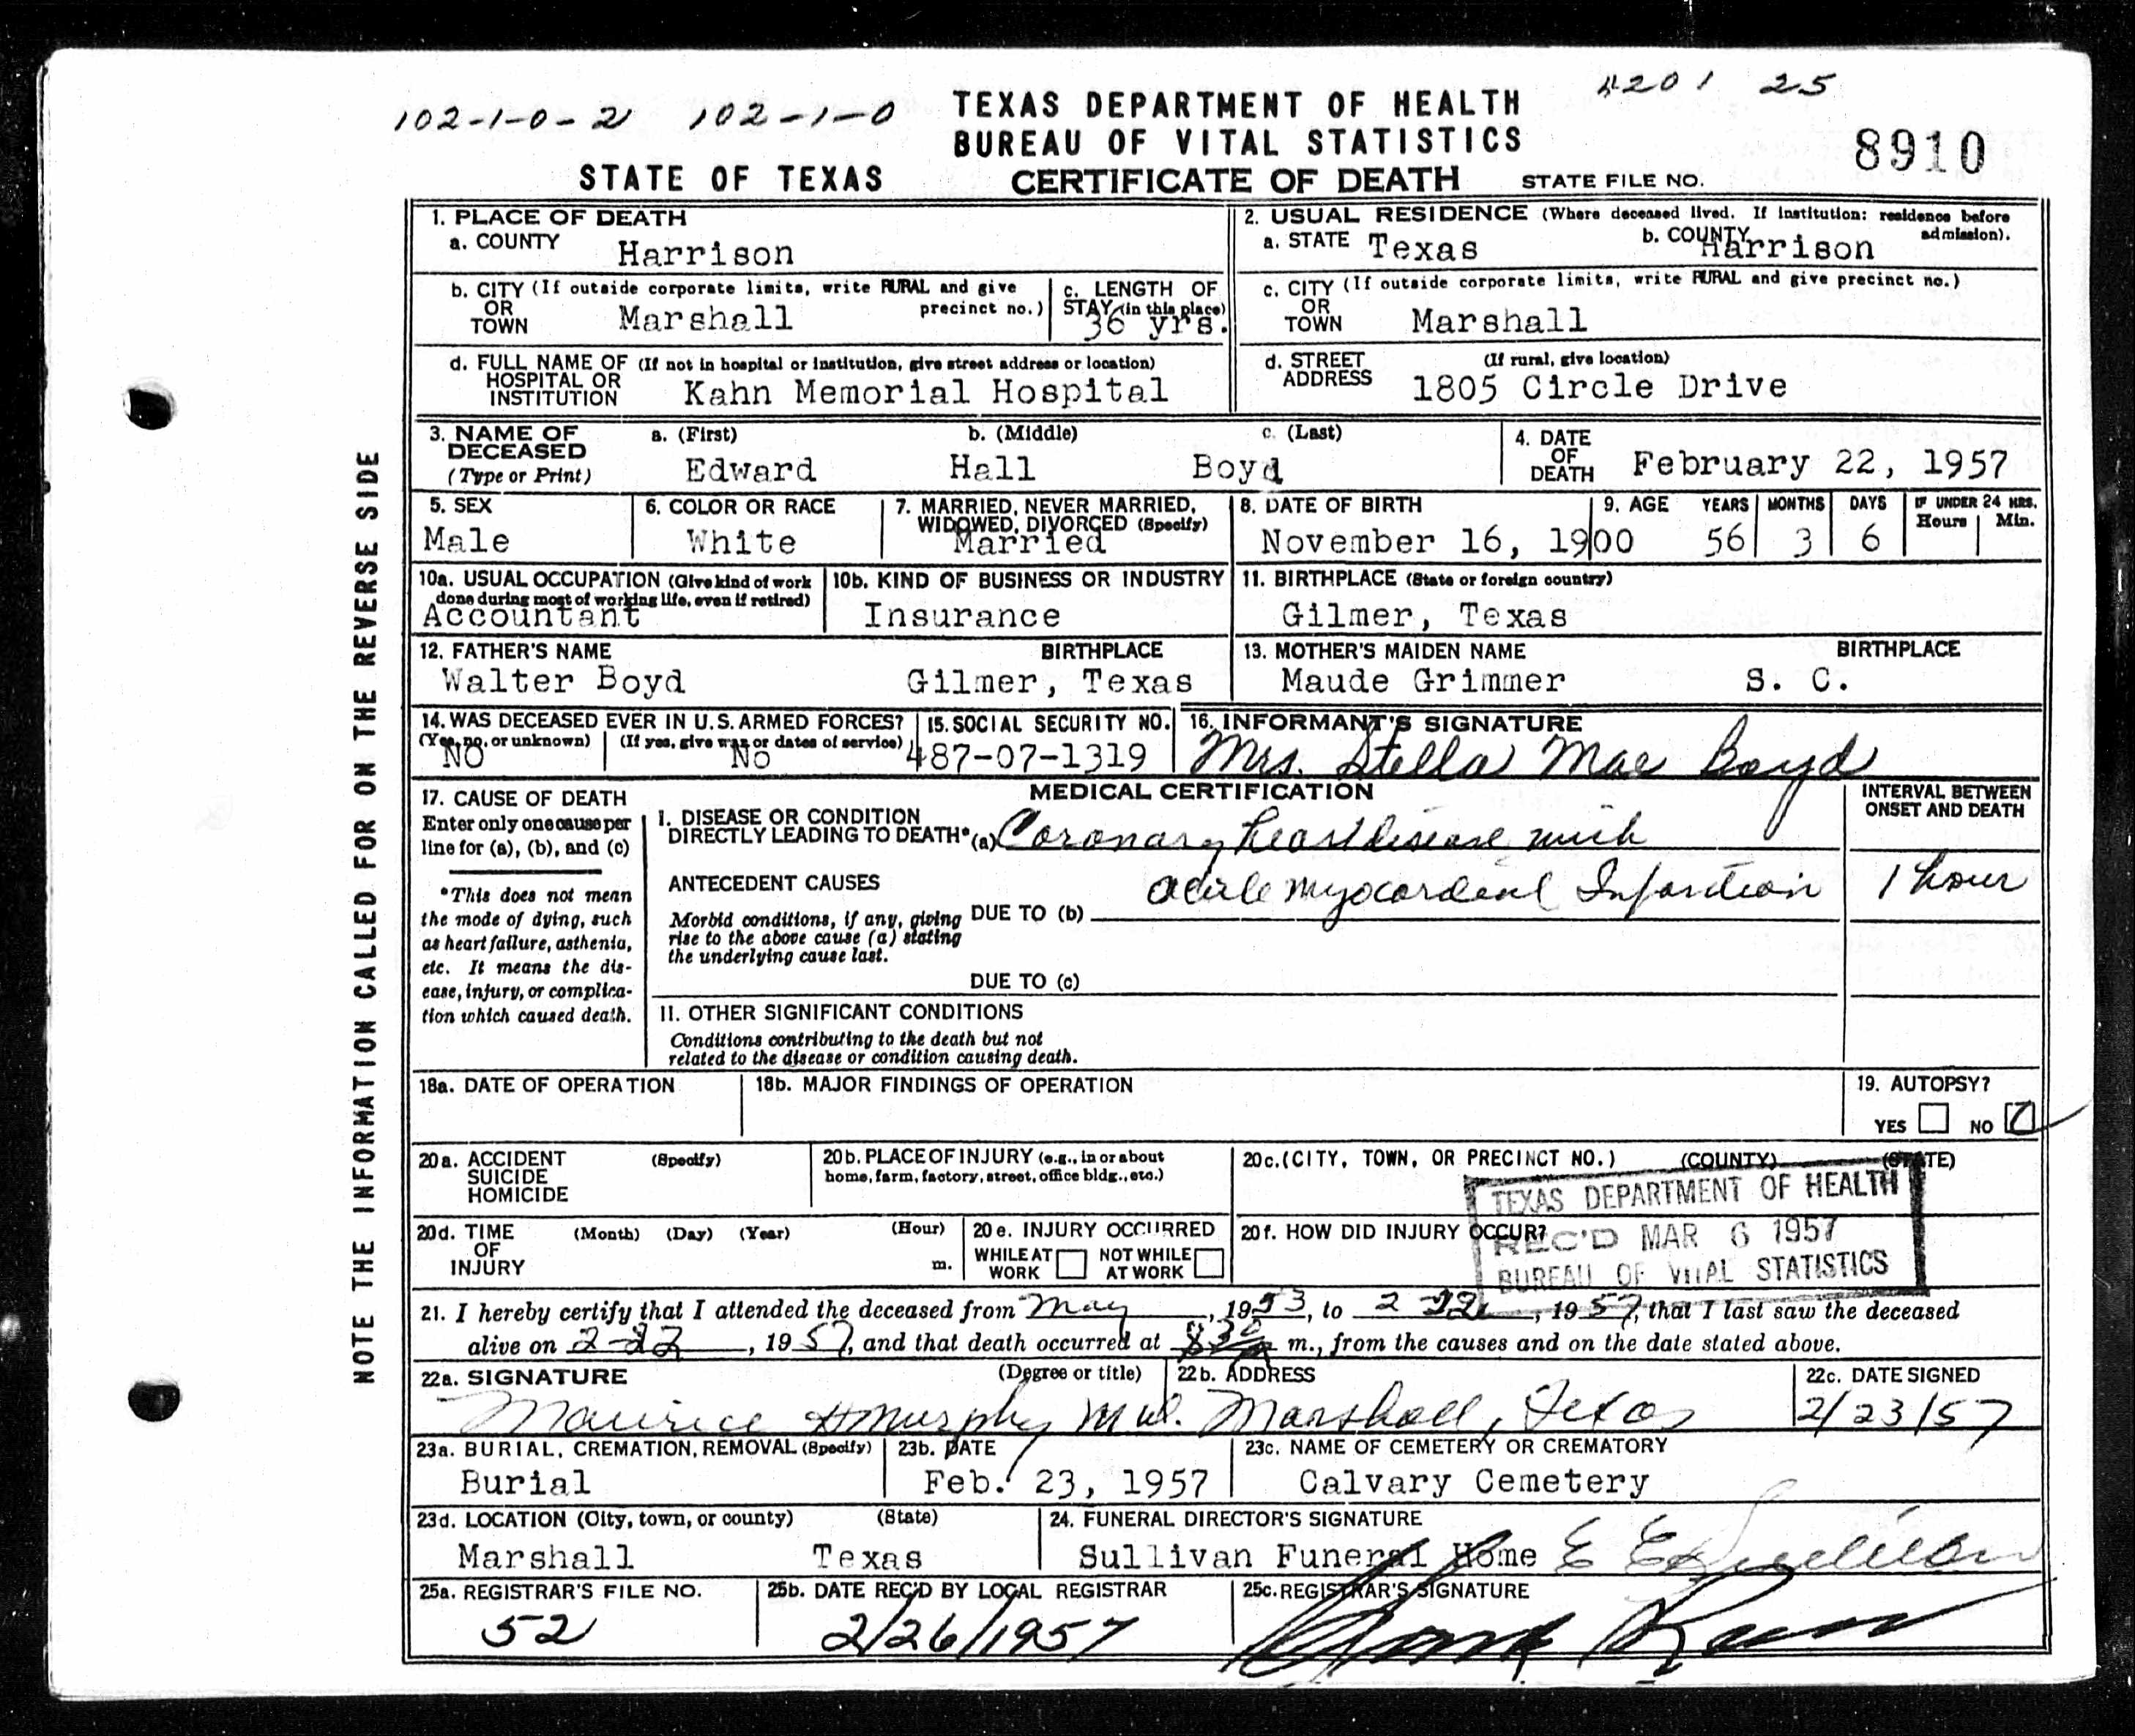 102-1-0-2 102-1-0 TEXAS DEPARTMENT OF HEALTH 4201 25
BUREAU OF VITAL STATISTICS 8910
STATE OF TEXAS CERTIFICATE OF DEATH STATE FILE NO.
NOTE THE INFORMATION CALLED FOR ON THE REVERSE SIDE
1. PLACE OF DEATH
a. COUNTY Harrison
2. USUAL RESIDENCE (Where deceased lived. If institution: residence before admission).
a. STATE Texas b. COUNTY Harrison
b. CITY (If outside corporate limits, write RURAL and give precinct no.)
OR TOWN Marshall
c. LENGTH OF STAY (in this place) 36 yrs.
c. CITY (If outside corporate limits, write RURAL and give precinct no.)
OR TOWN Marshall
d. FULL NAME OF (If not in hospital or institution, give street address or location)
HOSPITAL OR INSTITUTION Kahn Memorial Hospital
d. STREET ADDRESS (If rural, give location)
1805 Circle Drive
3. NAME OF DECEASED (Type or Print) a. (First) b. (Middle) c. (Last)
Edward Hall Boyd
4. DATE OF DEATH February 22, 1957
5. SEX
Male
6. COLOR OR RACE
White
7. MARRIED, NEVER MARRIED, WIDOWED, DIVORCED (Specify)
Married
8. DATE OF BIRTH
November 16, 1900
9. AGE YEARS MONTHS DAYS IF UNDER 24 HRS. Hours Min.
56 3 6
10a. USUAL OCCUPATION (Give kind of work done during most of working life, even if retired)
Accountant
10b. KIND OF BUSINESS OR INDUSTRY
Insurance
11. BIRTHPLACE (State or foreign country)
Gilmer, Texas
12. FATHER'S NAME BIRTHPLACE
Walter Boyd Gilmer, Texas
13. MOTHER'S MAIDEN NAME BIRTHPLACE
Maude Grimmer S. C.
14. WAS DECEASED EVER IN U.S. ARMED FORCES?
(Yes, no, or unknown) (If yes, give war or dates of service)
NO No
15. SOCIAL SECURITY NO.
487-07-1319
16. INFORMANT'S SIGNATURE
Mrs. Stella Mae Boyd
17. CAUSE OF DEATH
Enter only one cause per
line for (a), (b), and (c)
*This does not mean
the mode of dying, such
as heart failure, asthenia,
etc. It means the dis-
ease, injury, or complica-
tion which caused death.
MEDICAL CERTIFICATION
INTERVAL BETWEEN ONSET AND DEATH
I. DISEASE OR CONDITION
DIRECTLY LEADING TO DEATH* (a) Coronary heart disease with
ANTECEDENT CAUSES acute myocardial Infarction 1 hour
Morbid conditions, if any, giving DUE TO (b)
rise to the above cause (a) stating
the underlying cause last.
DUE TO (c)
II. OTHER SIGNIFICANT CONDITIONS
Conditions contributing to the death but not
related to the disease or condition causing death.
18a. DATE OF OPERATION
18b. MAJOR FINDINGS OF OPERATION
19. AUTOPSY?
YES NO
20a. ACCIDENT SUICIDE HOMICIDE (Specify)
20b. PLACE OF INJURY (e.g., in or about home, farm, factory, street, office bldg., etc.)
20c. (CITY, TOWN, OR PRECINCT NO.) (COUNTY) (STATE)
20d. TIME OF INJURY (Month) (Day) (Year) (Hour) m.
20e. INJURY OCCURRED
WHILE AT WORK NOT WHILE AT WORK
20f. HOW DID INJURY OCCUR?
TEXAS DEPARTMENT OF HEALTH
REC'D MAR 6 1957
BUREAU OF VITAL STATISTICS
21. I hereby certify that I attended the deceased from May, 1953, to 2-22, 1957, that I last saw the deceased
alive on 2-22, 1957, and that death occurred at m., from the causes and on the date stated above.
22a. SIGNATURE (Degree or title)
Maurice Murphy M.D.
22b. ADDRESS
Marshall, Texas
22c. DATE SIGNED
2/23/57
23a. BURIAL, CREMATION, REMOVAL (Specify)
Burial
23b. DATE
Feb. 23, 1957
23c. NAME OF CEMETERY OR CREMATORY
Calvary Cemetery
23d. LOCATION (City, town, or county) (State)
Marshall Texas
24. FUNERAL DIRECTOR'S SIGNATURE
Sullivan Funeral Home
25a. REGISTRAR'S FILE NO.
52
25b. DATE REC'D BY LOCAL REGISTRAR
2/26/1957
25c. REGISTRAR'S SIGNATURE